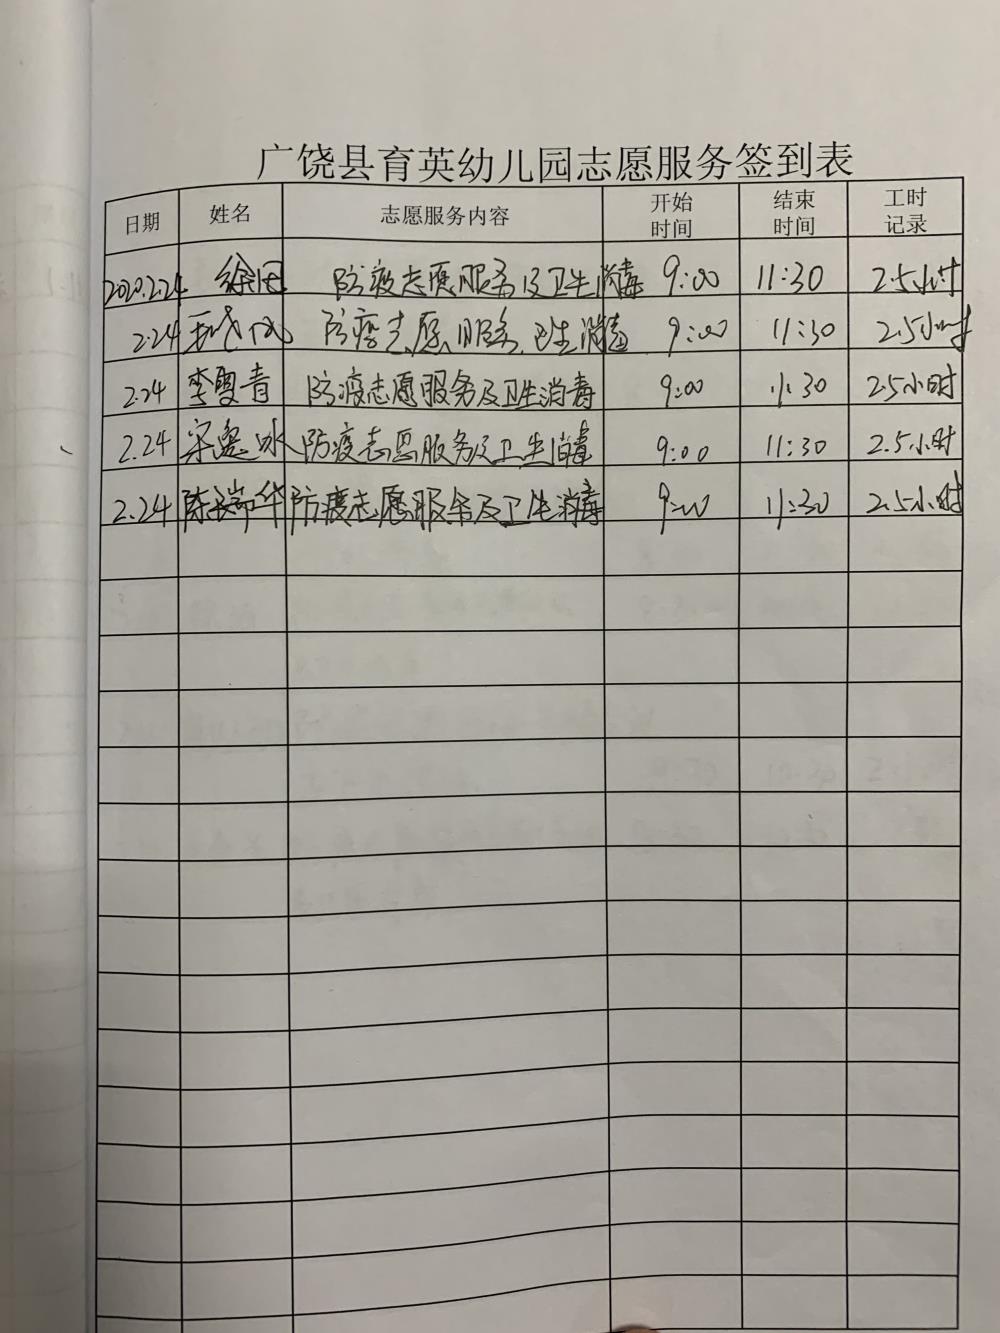 广饶县育英幼儿园志愿服务签到表
日期 姓名 志愿服务内容 开始时间 结束时间 工时记录
2020.2.24 徐 防疫志愿服务及卫生消毒 9:00 11:30 2.5小时
2.24 防疫志愿服务.卫生消毒 9:00 11:30 2.5小时
2.24 李雪青 防疫志愿服务及卫生消毒 9:00 11:30 2.5小时
2.24 冰 防疫志愿服务及卫生消毒 9:00 11:30 2.5小时
2.24 陈瑞华 防疫志愿服务及卫生消毒 9:00 11:30 2.5小时